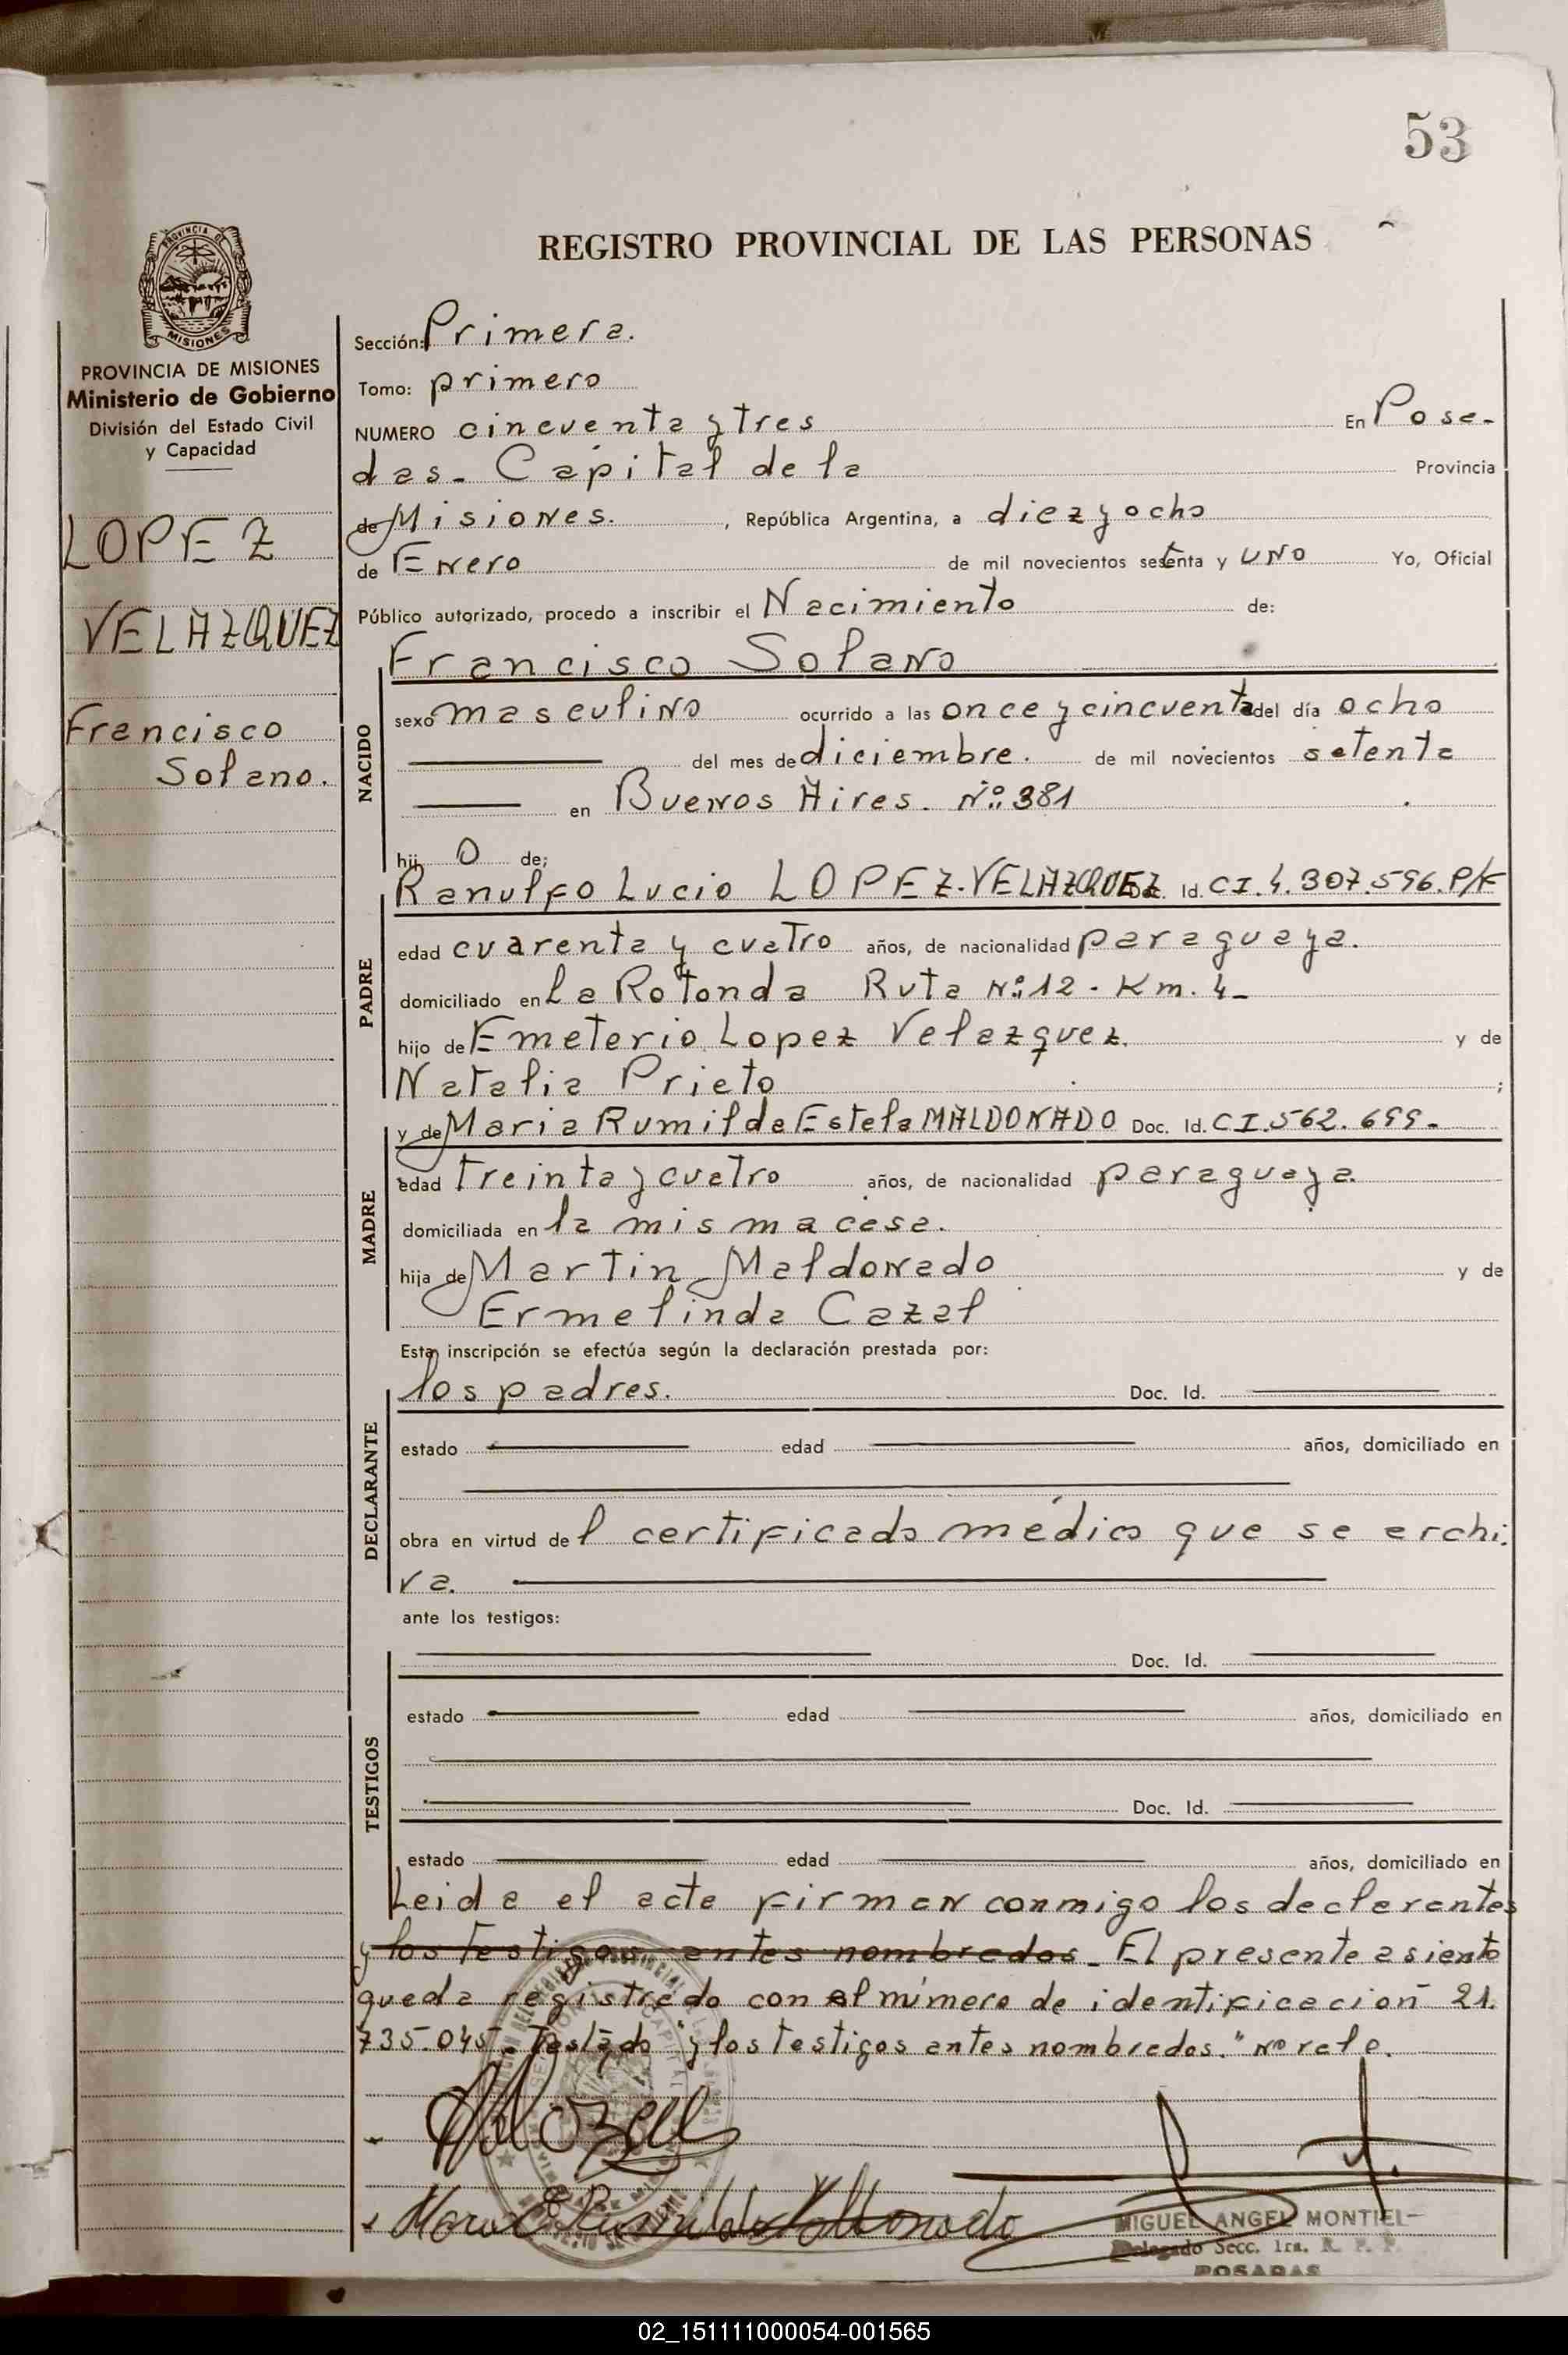 53
REGISTRO PROVINCIAL DE LAS PERSONAS
PROVINCIA DE
MISIONES
PROVINCIA DE MISIONES
Ministerio de Gobierno
División del Estado Civil
y Capacidad
LOPEZ
VELAZQUEZ
Francisco
Solano.
Sección: Primera.
Tomo: primero
NUMERO cincuenta y tres En Posa-
das- Capital de la Provincia
de Misiones. , República Argentina, a diez y ocho
de Enero de mil novecientos setenta y uno Yo, Oficial
Público autorizado, procedo a inscribir el Nacimiento de:
Francisco Solano
NACIDO
sexo masculino ocurrido a las once y cincuenta del día ocho
del mes de diciembre. de mil novecientos setenta
en Buenos Aires. Nº: 381
hij o de;
PADRE
Ranulfo Lucio LOPEZ-VELAZQUEZ Id. C I. 4. 307. 596. P/F
edad cuarenta y cuatro años, de nacionalidad paraguaya.
domiciliado en La Rotonda Ruta Nº: 12 - Km. 4-
hijo de Emeterio Lopez Velazquez. y de
Natalia Prieto ;
MADRE
y de Maria Rumilda Estela MALDONADO Doc. Id. C I. 562. 699.
edad treinta y cuatro años, de nacionalidad paraguaya.
domiciliada en la misma casa.
hija de Martin Maldonado y de
Ermelinda Cazal
Esta inscripción se efectúa según la declaración prestada por:
DECLARANTE
los padres. Doc. Id.
estado edad años, domiciliado en
obra en virtud de l certificado médico que se archi.
va.
ante los testigos:
TESTIGOS
Doc. Id.
estado edad años, domiciliado en
Doc. Id.
estado edad años, domiciliado en
Leida el acta firman conmigo los declarantes
y los testigos antes nombrados. El presente asiento
queda registrado con el número de identificación 21.
735.045- Testado "y los testigos antes nombrados." No vale.
Maria E Rumilda Maldonado
MIGUEL ANGEL MONTIEL
Delegado Secc. 1ra. R. P. P.
POSADAS
02_151111000054-001565